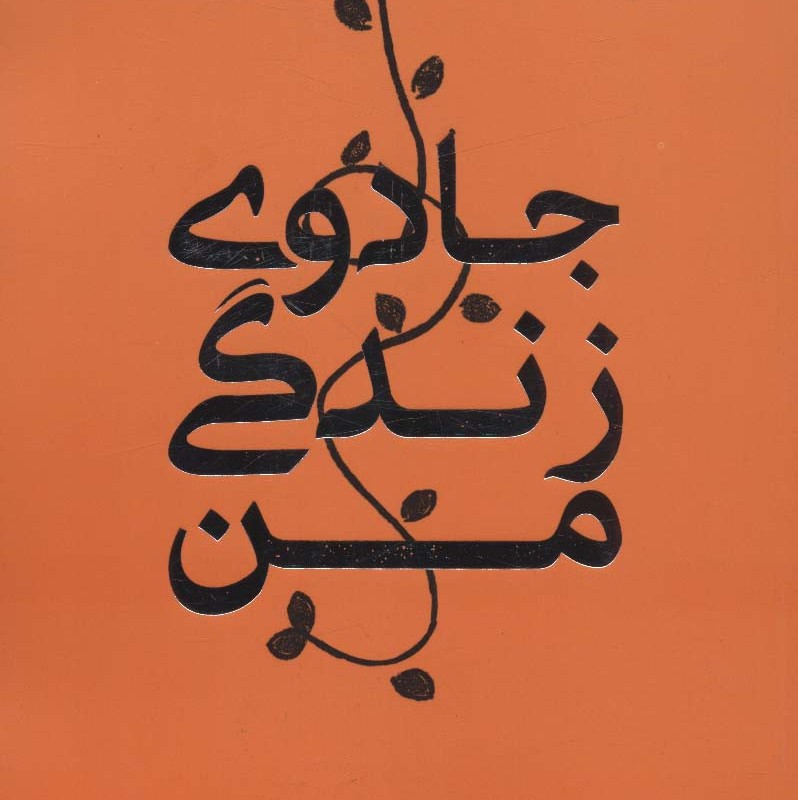 جادوی
زندگی
من